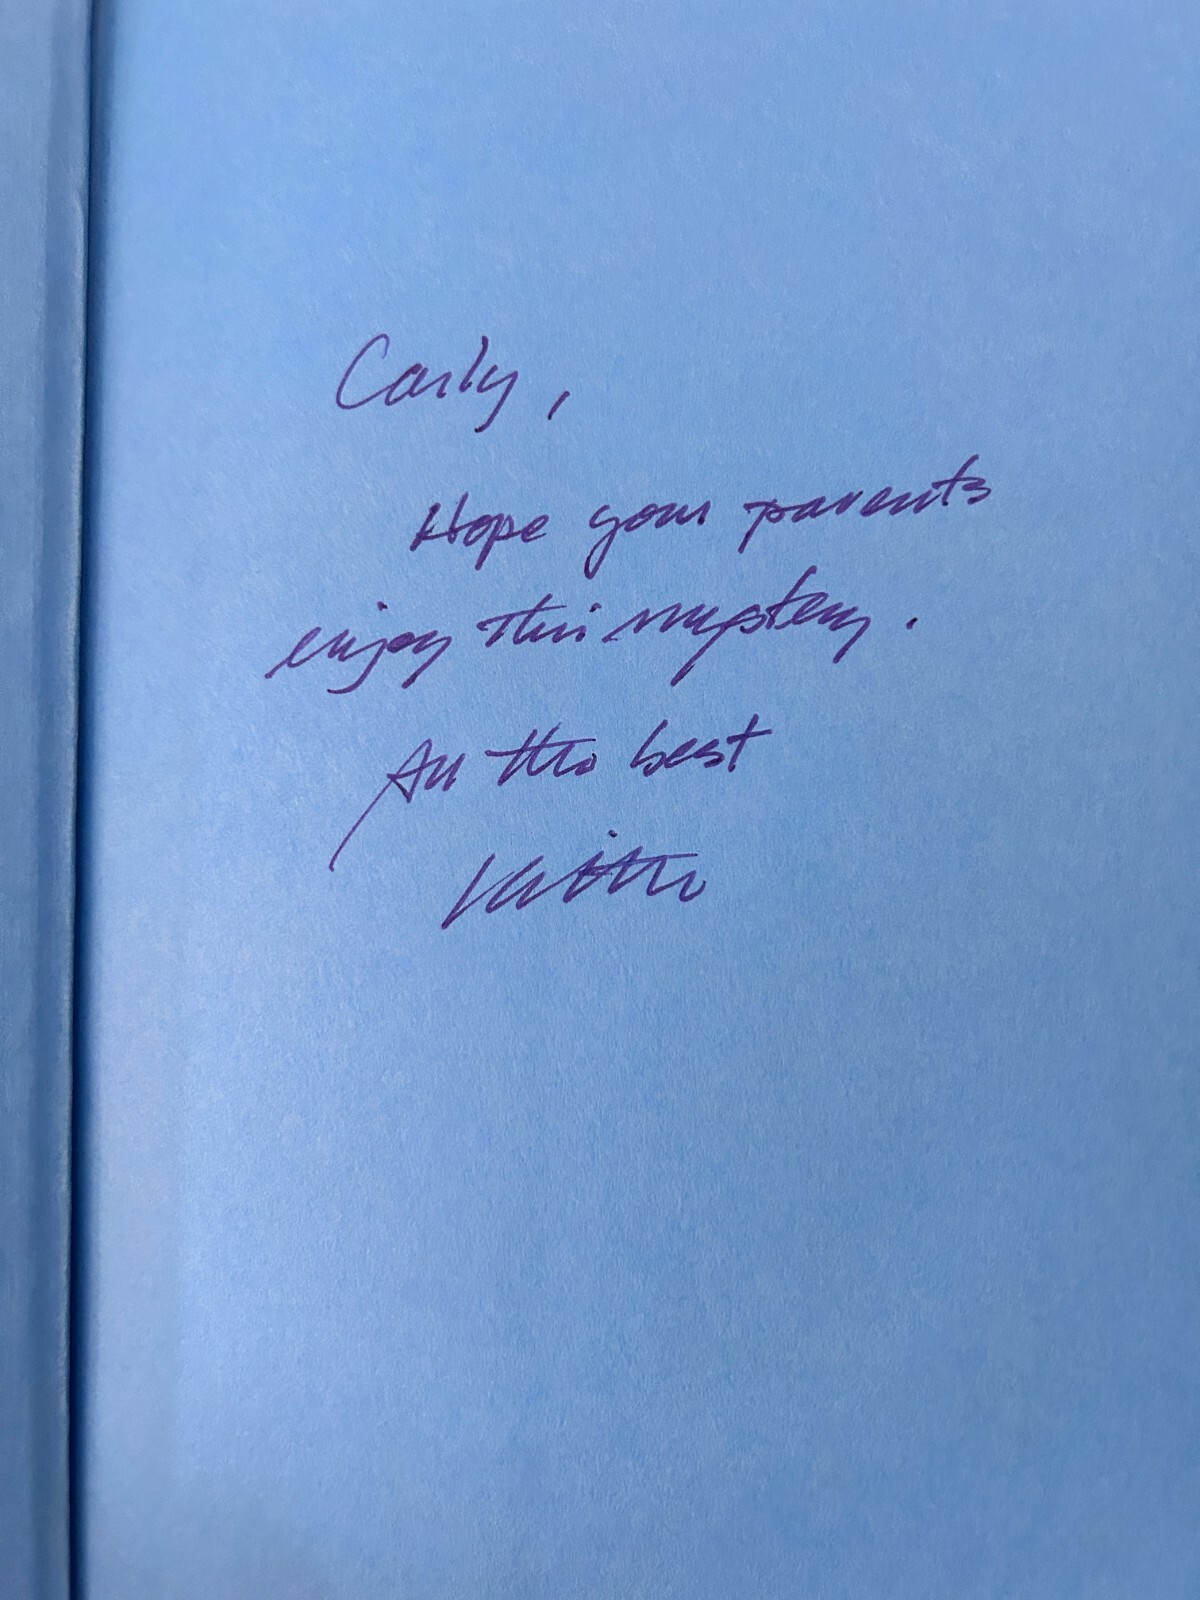 Carly,
Hope your parents
enjoy this mystery.
All the best